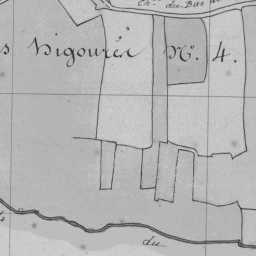 Ch. du Bas
s Vigourès N°. 4.
du